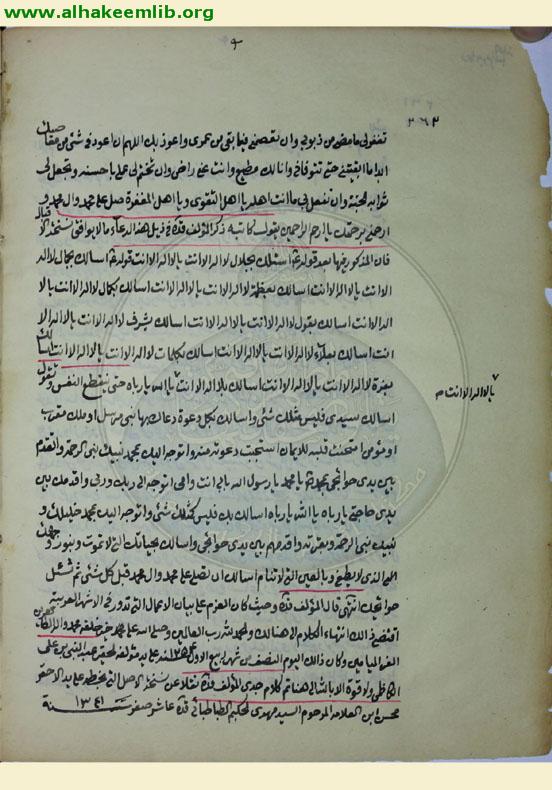 www.alhakeemlib.org
٣٦٢
تغفر لي ما مضى من ذنوبي وان تعصمني فيما بقي من عمري واعوذ بك اللهم ان اعود في شئ من معاصيك
ابدا ما ابقيتني حتى تتوفاني وانا لك مطيع وانت عني راض وان تختم لي عملي باحسنه وتجعل لي
ثوابه الجنة وان تفعل بي ما انت اهله يا اهل التقوى ويا اهل المغفرة صل على محمد وال محمد و
ارحمني برحمتك يا ارحم الراحمين يقول كاتبه ذكر المؤلف قده في ذيل هذا الدعاء ما لا يوافق نسخة الاقبال
فان المذكور فيها بعد قوله ثم اسئلك بجلال لا اله الا انت يا لا اله الا انت قوله ثم اسالك بجمال لا اله
الا انت يا لا اله الا انت اسالك بعظمة لا اله الا انت يا لا اله الا انت اسالك بكمال لا اله الا انت يا لا
اله الا انت اسالك بقول لا اله الا انت يا لا اله الا انت اسالك بشرف لا اله الا انت يا لا اله الا
انت اسالك بعلاء لا اله الا انت يا لا اله الا انت اسالك بكلمات لا اله الا انت يا لا اله الا انت اسالك
بعزة لا اله الا انت يا لا اله الا انت اسالك لا اله الا انت يا الله يا رباه حتى ينقطع النفس وتقول
يا لا اله الا انت ص
اسالك سيدي فليس مثلك شئ واسالك بكل دعوة دعاك بها نبي مرسل او ملك مقرب
او مؤمن امتحنت قلبه للايمان استجبت دعوته منه واتوجه اليك بمحمد نبيك نبي الرحمة واقدمه
بين يدي حوائجي بمحمد يا محمد يا رسول الله بابي انت وامي اتوجه الى ربك وربي واقدمك بين
يدي حاجتي يا رباه يا الله يا رباه اسالك بك فليس كمثلك شئ واتوجه اليك بمحمد خليلك و
نبيك نبي الرحمة وبعترته واقدمهم بين يدي حوائجي واسالك بحياتك التي لا تموت وبنور وجهك
الذي لا يطفئ وبالعين التي لا تنام اسالك ان تصلي على محمد وال محمد قبل كل شئ ثم تسئل
حوائجك انتهى قال المؤلف قده وحيث كان العزم على بيان الاعمال التي تدور في الاشهر العربية
اقتضى ذلك انتهاء الكلام الى هنالك والحمد لله رب العالمين وصلى الله على محمد خير خلقه محمد واله
الغر الميامين وكان ذلك اليوم النصف من شهر ربيع الاول سنة على يد مؤلفه الحقير عبد النبي بن على
الكاظمي ولا قوة الا بالله الى هنا تم كلام جدي المؤلف قده نقلا عن نسخة الاصل التي بخطه على يد الاحقر
محسن ابن العلامة المرحوم السيد مهدي الحكيم الطباطبائي قده عاشر صفر سنة ١٣٤١